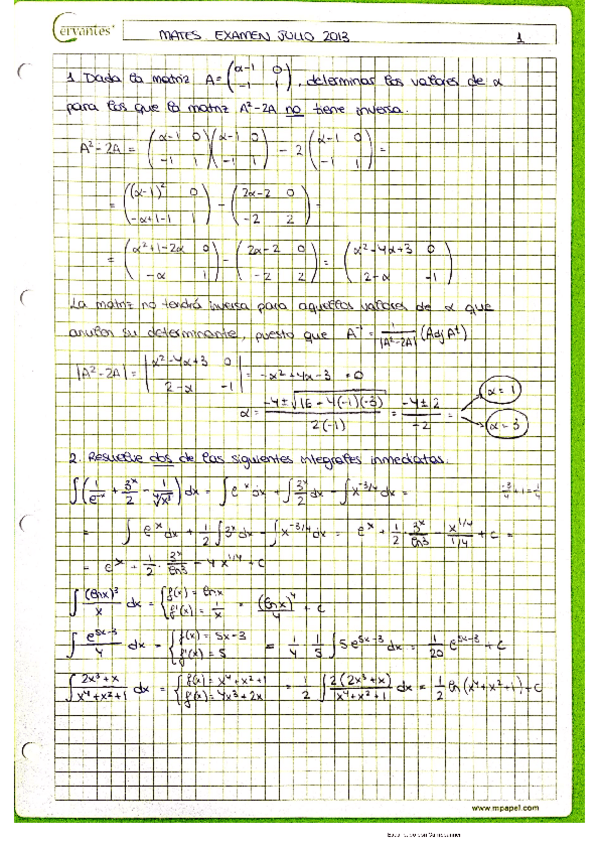 Cervantes
MATES EXAMEN JULIO 2013 1
1. Dada la matriz A = (α-1 0 / -1 1), determinar los valores de α
para los que la matriz A²-2A no tiene inversa.
A²-2A = (α-1 0 / -1 1)(α-1 0 / -1 1) - 2(α-1 0 / -1 1) =
= ((α-1)² 0 / -α+1-1 1) - (2α-2 0 / -2 2) =
= (α²+1-2α 0 / -α 1) - (2α-2 0 / -2 2) = (α²-4α+3 0 / 2-α -1)
La matriz no tendrá inversa para aquellos valores de α que
anulen su determinante, puesto que A⁻¹ = 1/|A²-2A| (Adj Aᵗ)
|A²-2A| = |α²-4α+3 0 / 2-α -1| = -α²+4α-3 = 0
α = (-4±√(16-4(-1)(-3)))/(2(-1)) = (-4±2)/(-2) = α=1 α=3
2. Resuelve dos de las siguientes integrales inmediatas.
∫(1/e⁻ˣ + 3ˣ/2 - 1/⁴√x³) dx = ∫eˣdx + ∫3ˣ/2 dx - ∫x^(-3/4) dx = -3/4+1=1/4
= ∫eˣdx + 1/2 ∫3ˣdx - ∫x^(-3/4) dx = eˣ + 1/2 · 3ˣ/ln3 - x^(1/4)/(1/4) + C =
= eˣ + 1/2 · 3ˣ/ln3 - 4x^(1/4) + C
∫(lnx)³/x dx = {f(x)=lnx / f'(x)=1/x = (lnx)⁴/4 + C
∫e^(5x-3)/4 dx = {f(x)=5x-3 / f'(x)=5 = 1/4 · 1/5 ∫5e^(5x-3) dx = 1/20 e^(5x-3) + C
∫(2x³+x)/(x⁴+x²+1) dx = {f(x)=x⁴+x²+1 / f'(x)=4x³+2x = 1/2 ∫2(2x³+x)/(x⁴+x²+1) dx = 1/2 ln(x⁴+x²+1)+C
www.mpapel.com